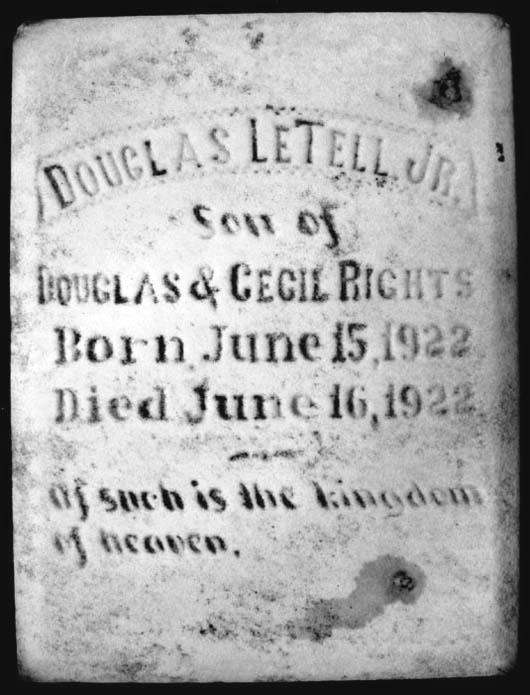 DOUGLAS LETELL. JR.
Son of
DOUGLAS & CECIL RIGHTS
Born June 15, 1922
Died June 16, 1922.
Of such is the kingdom
of heaven.